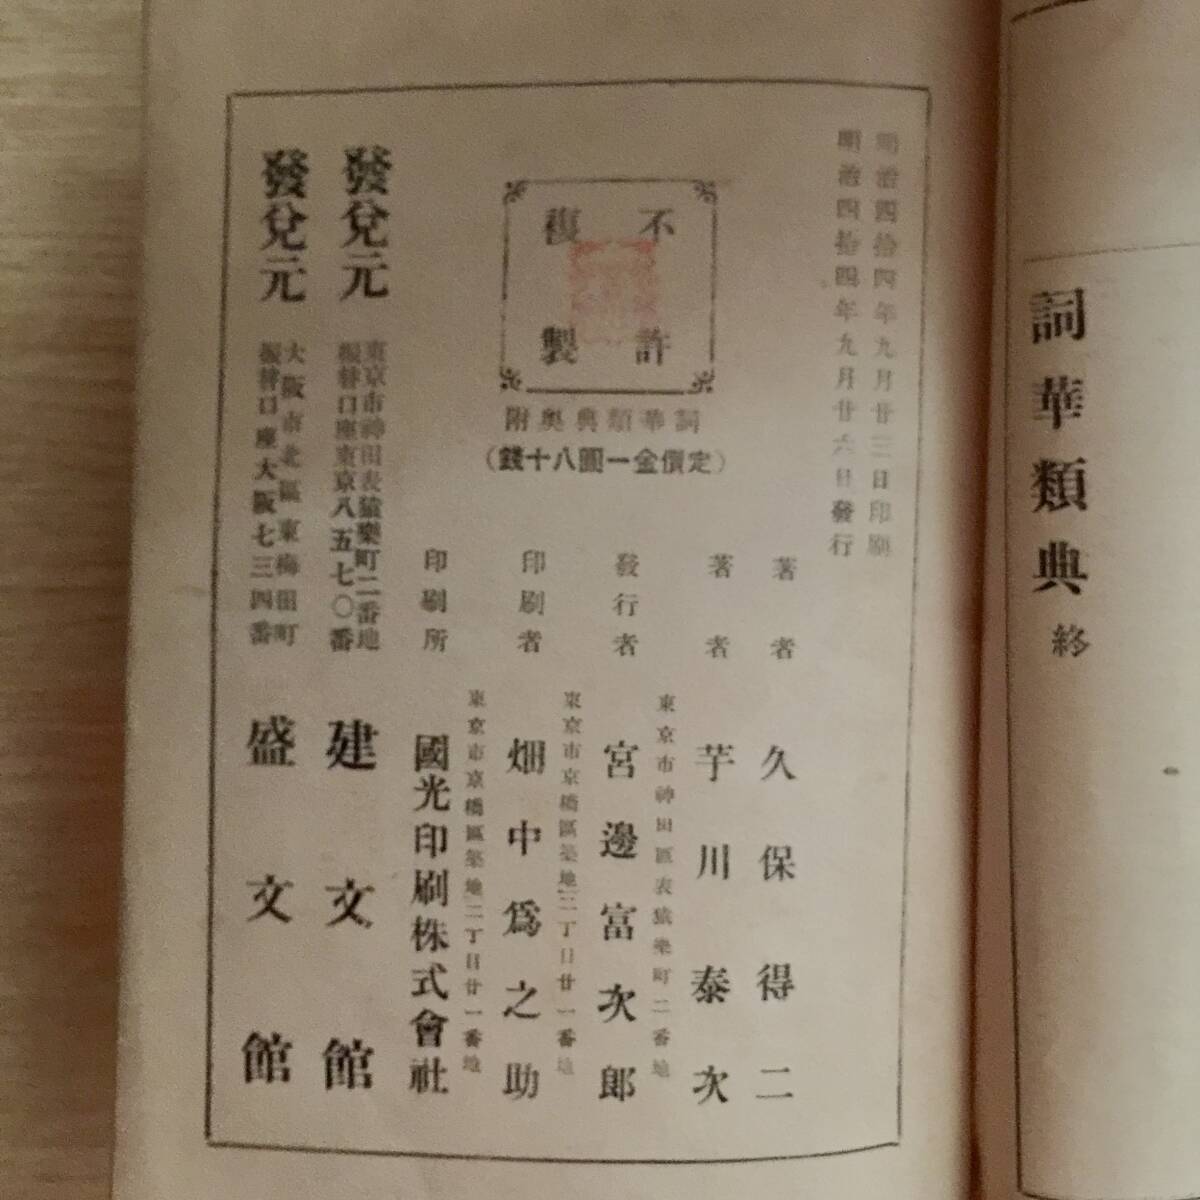 詞華類典終
明治四拾四年九月廿三日印刷
明治四拾四年九月廿六日發行
不許
複製
詞華類典奧附
(定價金一圓八十錢)
著者 久保得二
著者 芋川泰次
東京市神田區表猿樂町二番地
發行者 宮邊富次郎
東京市京橋區築地二丁目廿一番地
印刷者 畑中爲之助
東京市京橋區築地二丁目廿一番地
印刷所 國光印刷株式會社
發兌元
東京市神田表猿樂町二番地
振替口座東京八五七〇番
建文館
發兌元
大阪市北區東梅田町
振替口座大阪七三四番
盛文館